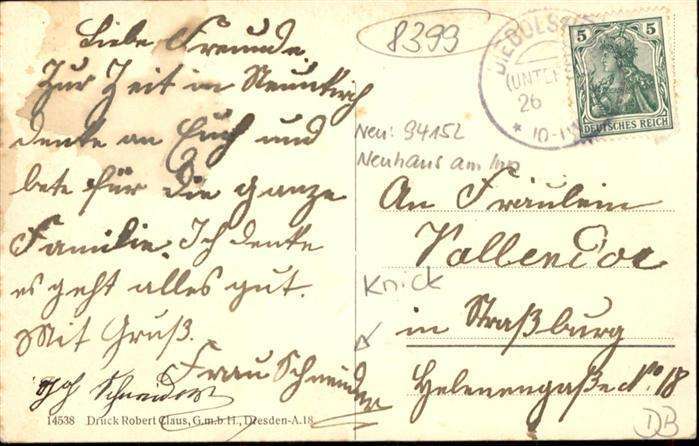 Liebe Freunde.
Zur Zeit in Neunkirch
denke an Euch und
bete für die ganze
Familie. Ich denke
es geht alles gut.
Mit Gruß.
Frau Schneider
Joh Schneider
14538 Druck Robert Claus, G.m.b H., Dresden-A.18
8399
DIEBOLSHEIM
(UNTER
26
* 10-11
5 5
DEUTSCHES REICH
Neu: 94152
Neuhaus am Inn
An Fräulein
Vallendor
Knick
in Straßburg
Helenengaße No. 18
DB